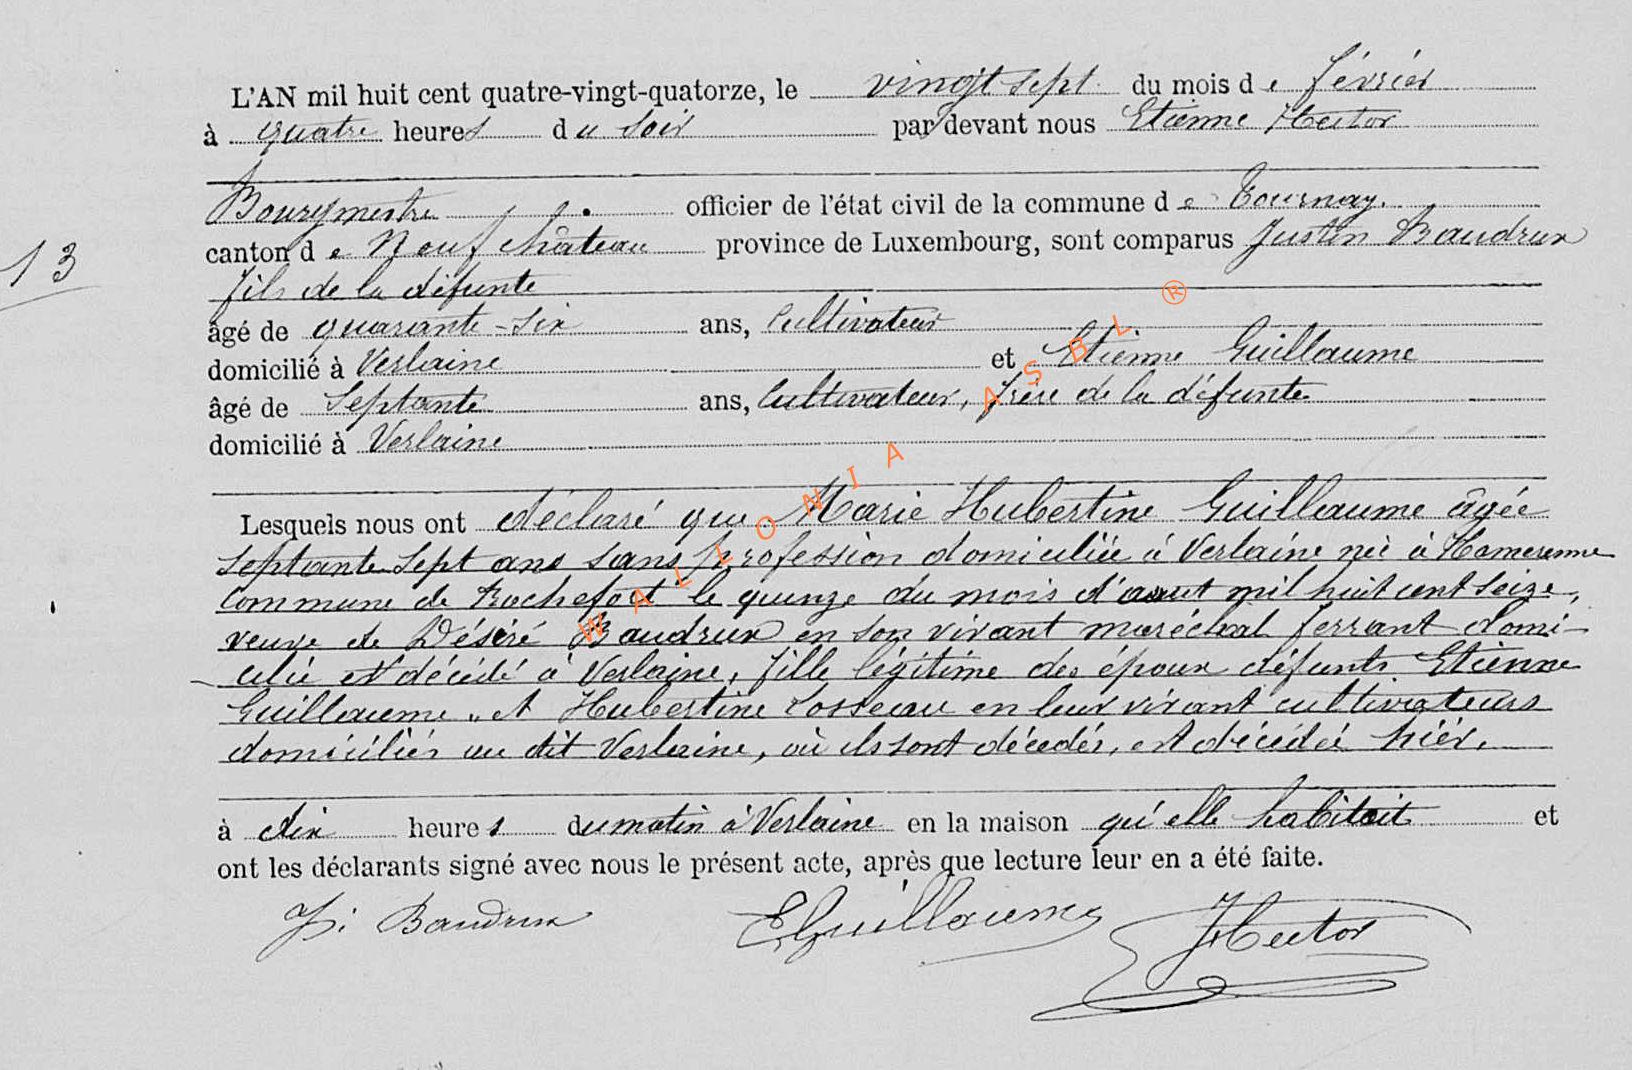 L'AN mil huit cent quatre-vingt-quatorze, le vingt sept du mois de Février
à quatre heures du soir par devant nous Etienne Hector
Bourgmestre officier de l'état civil de la commune de Tournay.
canton de Neufchâteau province de Luxembourg, sont comparus Justin Baudrux
13
fils de la défunte
âgé de quarante-six ans, Cultivateur
domicilié à Verlaine et Etienne Guillaume
âgé de Septante ans, Cultivateur, frère de la défunte
domicilié à Verlaine
Lesquels nous ont déclaré que Marie Hubertine Guillaume âgée
septante sept ans sans profession domiciliée à Verlaine née à Hamerenne
Commune de Rochefort le quinze du mois d'aout mil huit cent seize,
veuve de Désiré Baudrux en son vivant maréchal ferrant domi-
cilié et décédé à Verlaine, fille légitime des époux défunts Etienne
Guillaume et Hubertine Losseau en leur vivant cultivateurs
domiciliés au dit Verlaine, où ils sont décédés, est décédée hier,
à dix heures du matin à Verlaine en la maison qu'elle habitait et
ont les déclarants signé avec nous le présent acte, après que lecture leur en a été faite.
J. Baudrux EGuillaume Hector
WALLONIA ASBL ®